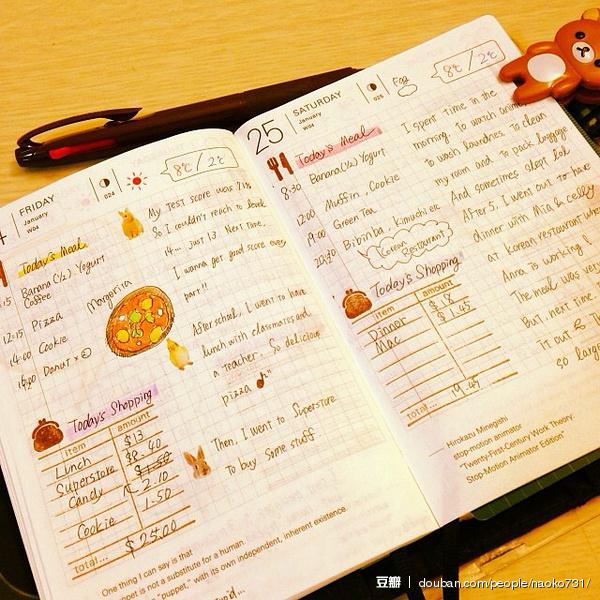 FRIDAY
January
W04
024
8℃ / 2℃
Today's Meal
Banana (½) Yogurt
Coffee
12:15 Pizza
14:00 Cookie
Donut ×
Margarita
My test score was
So I couldn't reach to level
14... just 13. Next time,
I wanna get good score every
part!!
After school, I went to have
lunch with classmates and
a teacher. So delicious
pizza ♪
Then, I went to Superstore
to buy some stuff
Today's Shopping
item amount
Lunch $13
Superstore $8.40
Candy $1.50 2.10
Cookie 1.50
total... $25.00
One thing I can say is that
puppet is not a substitute for a human.
"puppet," with its own independent, inherent existence.
25
SATURDAY
January
W04
025
Egg
8℃ / 2℃
Today's Meal
8:30 Banana (½) Yogurt
Muffin, Cookie
12:00 Green Tea
19:00 Bibinba, Kimuchi etc
20:30
Korean Restaurant
I spent time in the
morning to watch
to wash laundries to clean
my room and to pack luggage
And sometimes slept lol
After 5, I went out to have
dinner with Mia & Celly
at Korean restaurant where
Anna is working!
The meal was very
But, next time,
it out
so large
Today's Shopping
item amount
Dinner $18
Mac $1.45
total... 19.45
Hirokazu Minegishi
stop-motion animator
"Twenty-First-Century Work Theory:
Stop-Motion Animator Edition"
豆瓣 | douban.com/people/naoko731/